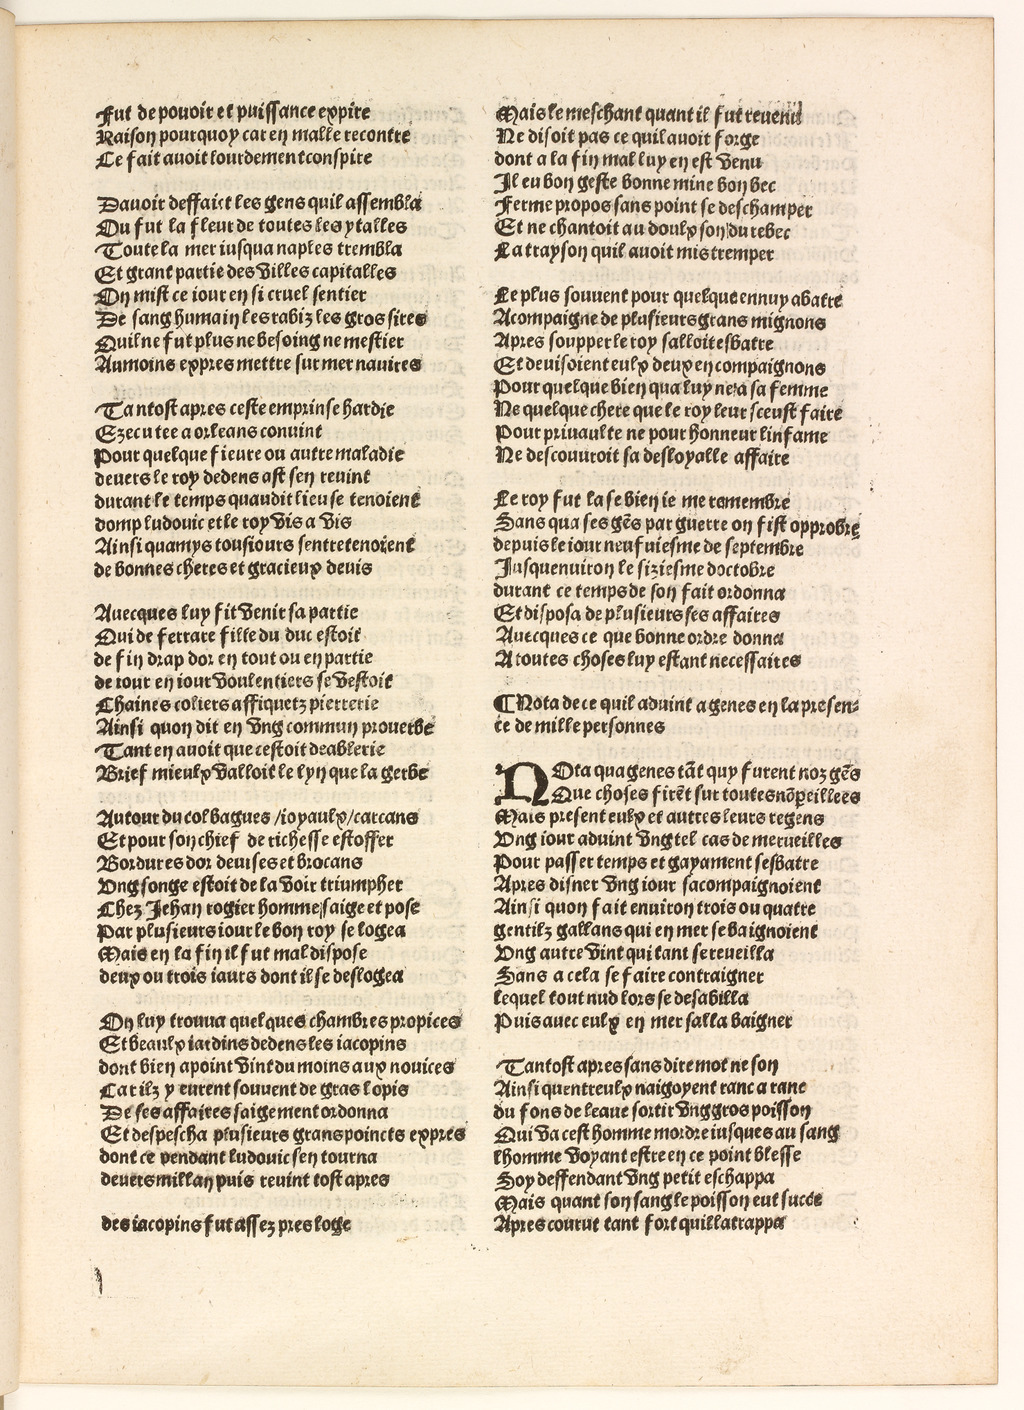 Fut de povoir et puissance expire
Raison pourquoy car en malle recontre
Ce fait avoit lourdement conspire
Davoir deffaict les gens quil assembla
Ou fut la fleur de toutes les ytalles
Toute la mer iusqua naples trembla
Et grant partie des villes capitalles
On mist ce iour en si cruel sentier
De sang humain les rabiz les gros sires
Quil ne fut plus ne besoing ne mestier
Aumoins expres mettre sur mer navires
Tantost apres ceste emprinse hardie
Ezecutee a orleans convint
Pour quelque fieure ou autre maladie
devers le roy dedens ast sen revint
durant le temps quaudit lieu se tenoient
domp ludovic et le roy vis a vis
Ainsi quamys tousiours sentretenoient
de bonnes cheres et gracieux devis
Avecques luy fit venir sa partie
Qui de ferrare fille du duc estoit
de fin drap dor en tout ou en partie
de iour en iour voulentiers se vestoit
Chaines coliers affiquetz pierrerie
Ainsi quon dit en vng commun prouerbe
Tant en avoit que cestoit deablerie
Brief mieulx valloit le lyn que la gerbe
Autour du col bagues /ioyaulx/carcans
Et pour son chief de richesse estoffer
Bordures dor devises et brocans
Vng songe estoit de la voir triumpher
Chez Jehan rogier homme saige et pose
Par plusieurs iour le bon roy se logea
Mais en la fin il fut mal dispose
deux ou trois iaurs dont il se deslogea
On luy trouva quelques chambres propices
Et beaulx iardins dedens les iacopins
dont bien apoint vint du moins aux novices
Car ilz y eurent souvent de gras lopis
De ses affaires saigement ordonna
Et despescha plusieurs grans poincts expres
dont ce pendant ludovic sen tourna
devers millan puis revint tost apres
des iacopins fut assez pres loge
Mais le meschant quant il fut revenu
Ne disoit pas ce quil avoit forge
dont a la fin mal luy en est venu
Il eu bon geste bonne mine bon bec
Ferme propos sans point se deschamper
Et ne chantoit au doulx son du rebec
La trayson quil avoit mis tremper
Le plus souvent pour quelque ennuy abatre
Acompaigne de plusieurs grans mignons
Apres soupper le roy salloit esbatre
Et devisoient eulx deux en compaignons
Pour quelque bien qua luy ne a sa femme
Ne quelque chere que le roy leur sceust faire
Pour privaulte ne pour honneur linfame
Ne descouvroit sa desloyalle affaire
Le roy fut la se bien ie me remembre
Sans qua ses gẽs par guerre on fist opprobre
depuis le iour neufuiesme de septembre
Jusquenuiron le siziesme doctobre
durant ce temps de son fait ordonna
Et disposa de plusieurs ses affaires
Avecques ce que bonne ordre donna
A toutes choses luy estant necessaires
¶Nota de ce quil advint a genes en la presen-
ce de mille personnes
NOta qua genes tãt quy furent noz gẽs
Que choses firẽt sur toutes nõpeillees
Mais present eulx et autres leurs regens
Vng iour advint vng tel cas de merveilles
Pour passer temps et gayament sesbatre
Apres disner vng iour sacompaignoient
Ainsi quon fait environ trois ou quatre
gentilz gallans qui en mer se baignoient
Vng autre vint qui tant se reveilla
Sans a cela se faire contraigner
lequel tout nud lors se desabilla
Puis avec eulx en mer salla baigner
Tantost apres sans dire mot ne son
Ainsi quentreulx naigoyent ranc a ranc
du fons de leaue sortir vng gros poisson
Qui va cest homme mordre iusques au sang
lhomme voyant estre en ce point blesse
Soy deffendant vng petit eschappa
Mais quant son sang le poisson eut succe
Apres courut tant fort quil latrappa